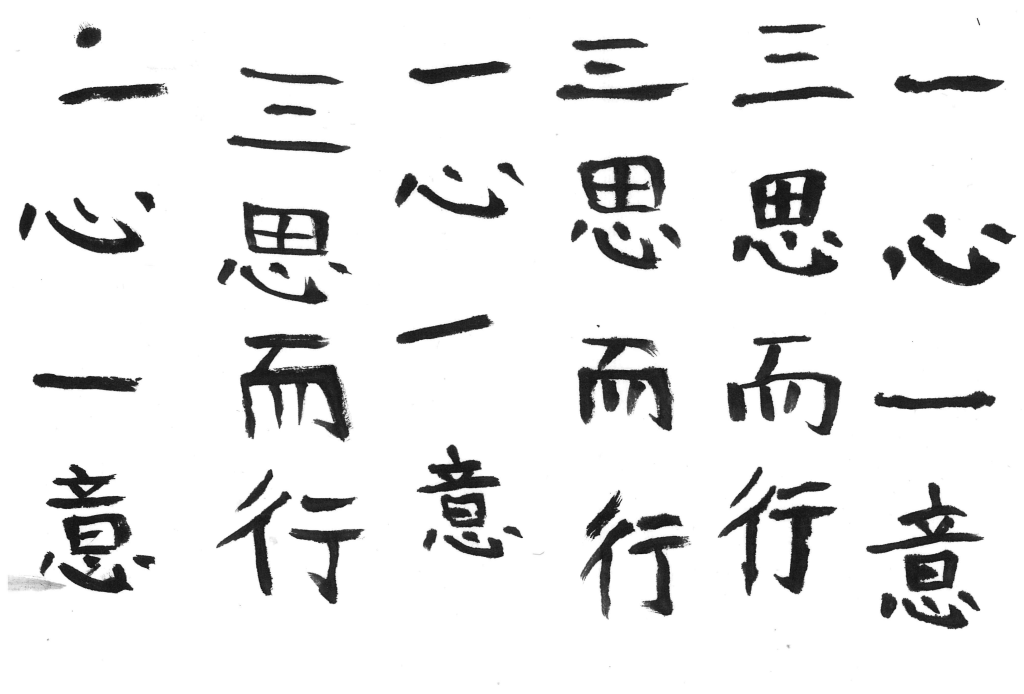 一心一意
三思而行
三思而行
一心一意
三思而行
一心一意